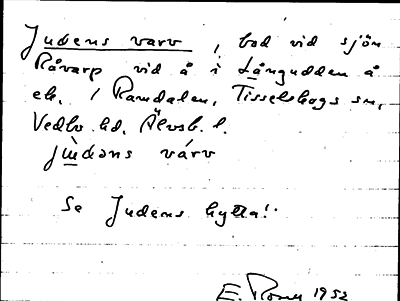 Judens varv, bod vid sjön
Råvarp vid å i Långudden å
ek. i Ramdalen, Tisselskogs sn,
Vedbo hd. Älvsb. l.
jùdəns várv
Se Judens hytta!
E. 1952